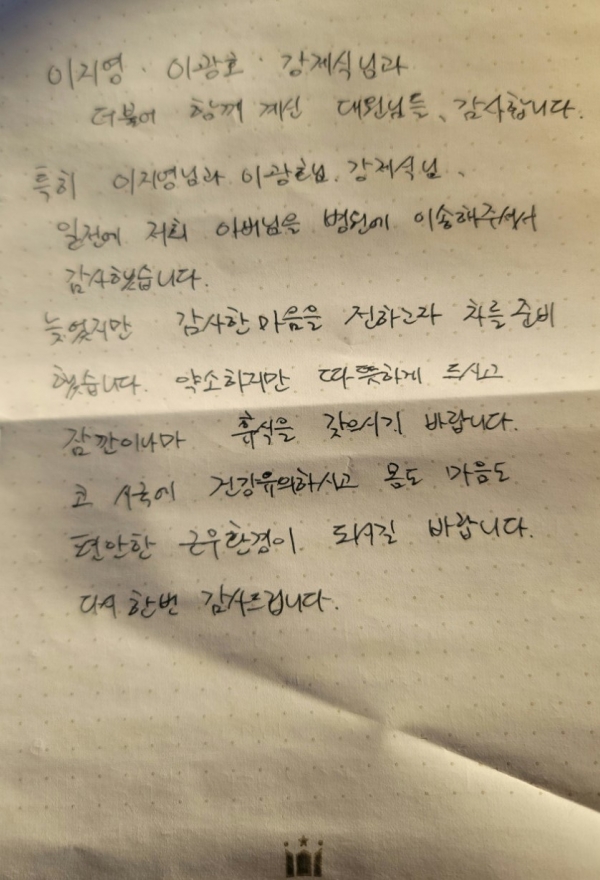 이지영 · 이광호 · 강제식님과
더불어 함께 계신 대원님들, 감사합니다.
특히 이지영님과 이광호님, 강제식님,
일전에 저희 아버님을 병원에 이송해주셔서
감사했습니다.
늦었지만 감사한 마음을 전하고자 차를 준비
했습니다. 약소하지만 따뜻하게 드시고
잠깐이나마 휴식을 갖으시기 바랍니다.
코 시국에 건강유의하시고 몸도 마음도
편안한 근무환경이 되시길 바랍니다.
다시 한번 감사드립니다.